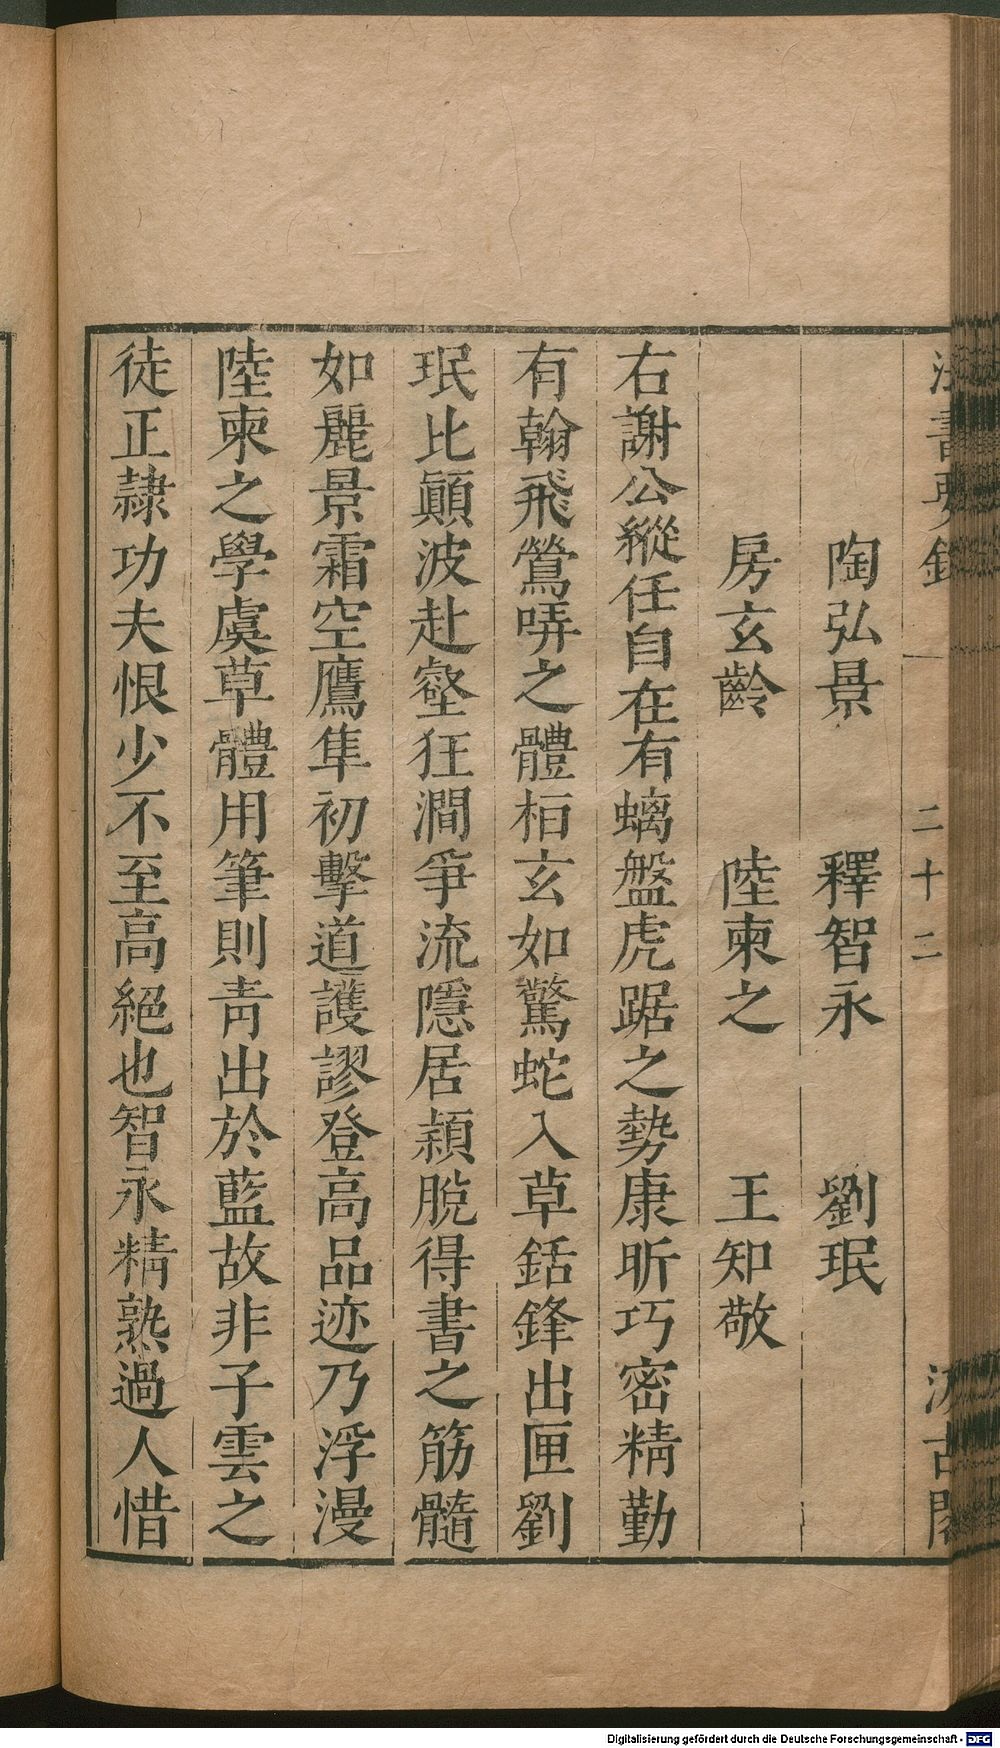 法書要錄 二十二 汲古閣
陶弘景 釋智永 劉珉
房玄齡 陸柬之 王知敬
右謝公縱任自在有螭盤虎踞之勢康昕巧密精勤
有翰飛鶯哢之體桓玄如驚蛇入草銛鋒出匣劉
珉比顛波赴壑狂澗爭流隱居穎脫得書之筋髓
如麗景霜空鷹隼初擊道護謬登高品迹乃浮漫
陸柬之學虞草體用筆則青出於藍故非子雲之
徒正隷功夫恨少不至高絕也智永精熟過人惜
Digitalisierung gefördert durch die Deutsche Forschungsgemeinschaft - DFG